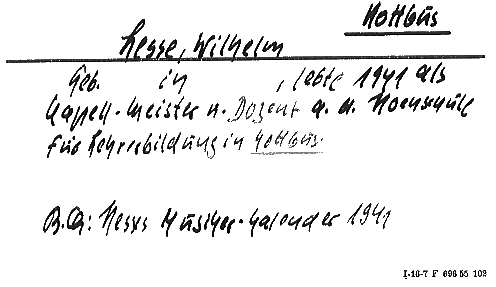 Kottbus
Lesse, Wilhelm
Geb. in , lebte 1941 als
Kapell-Meister u. Dozent a. d. Hochschule
für Lehrerbildung in Kottbus.
B.Q: Hesses Musiker-Kalender 1941
I-16-7 F 696 55 102